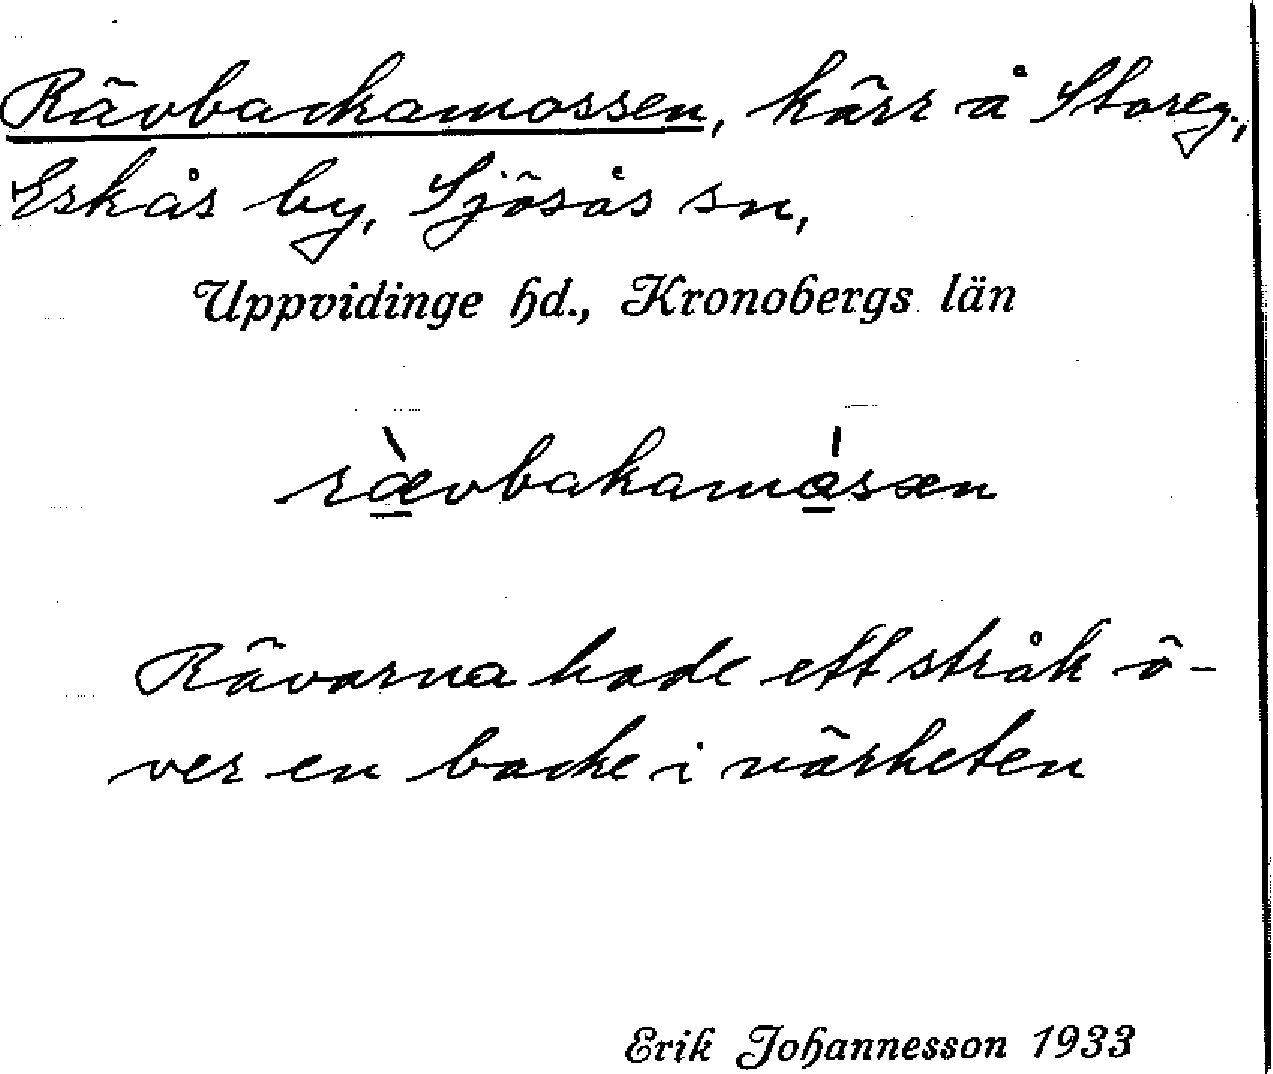 Rävbackamossen, kärr å Storeg.,
Eskås by, Sjösås sn,
Uppvidinge hd., Kronobergs län
rævbakamåsæn
Rävarna hade ett stråk ö-
ver en backe i närheten
Erik Johannesson 1933